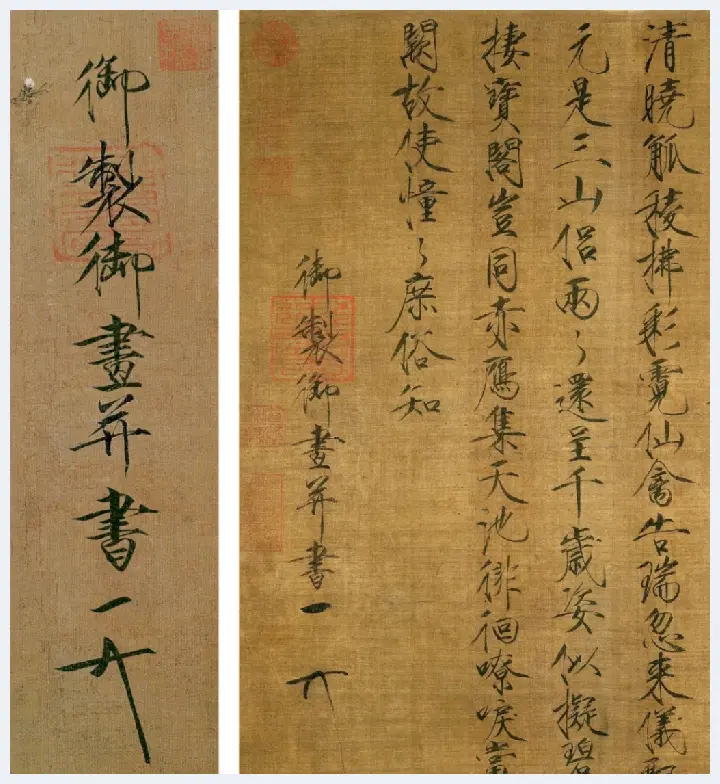 清曉觚稜拂彩霓仙禽告瑞忽來儀
元是三山侶兩〻還呈千歲姿似擬碧
棲寶閣豈同赤鴈集天池徘徊嘹唳當
闕故使憧〻庶俗知
御製御畫并書
御製御畫并書